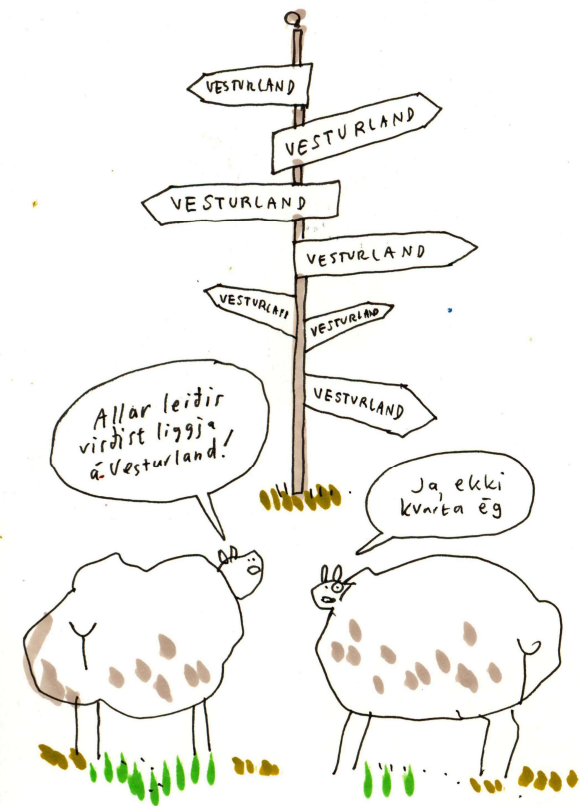 VESTURLAND
VESTURLAND
VESTURLAND
VESTURLAND
VESTURLAND
VESTURLAND
VESTURLAND
Allar leiðir
virðist liggja
á Vesturland!
Ja, ekki
kvarta ég